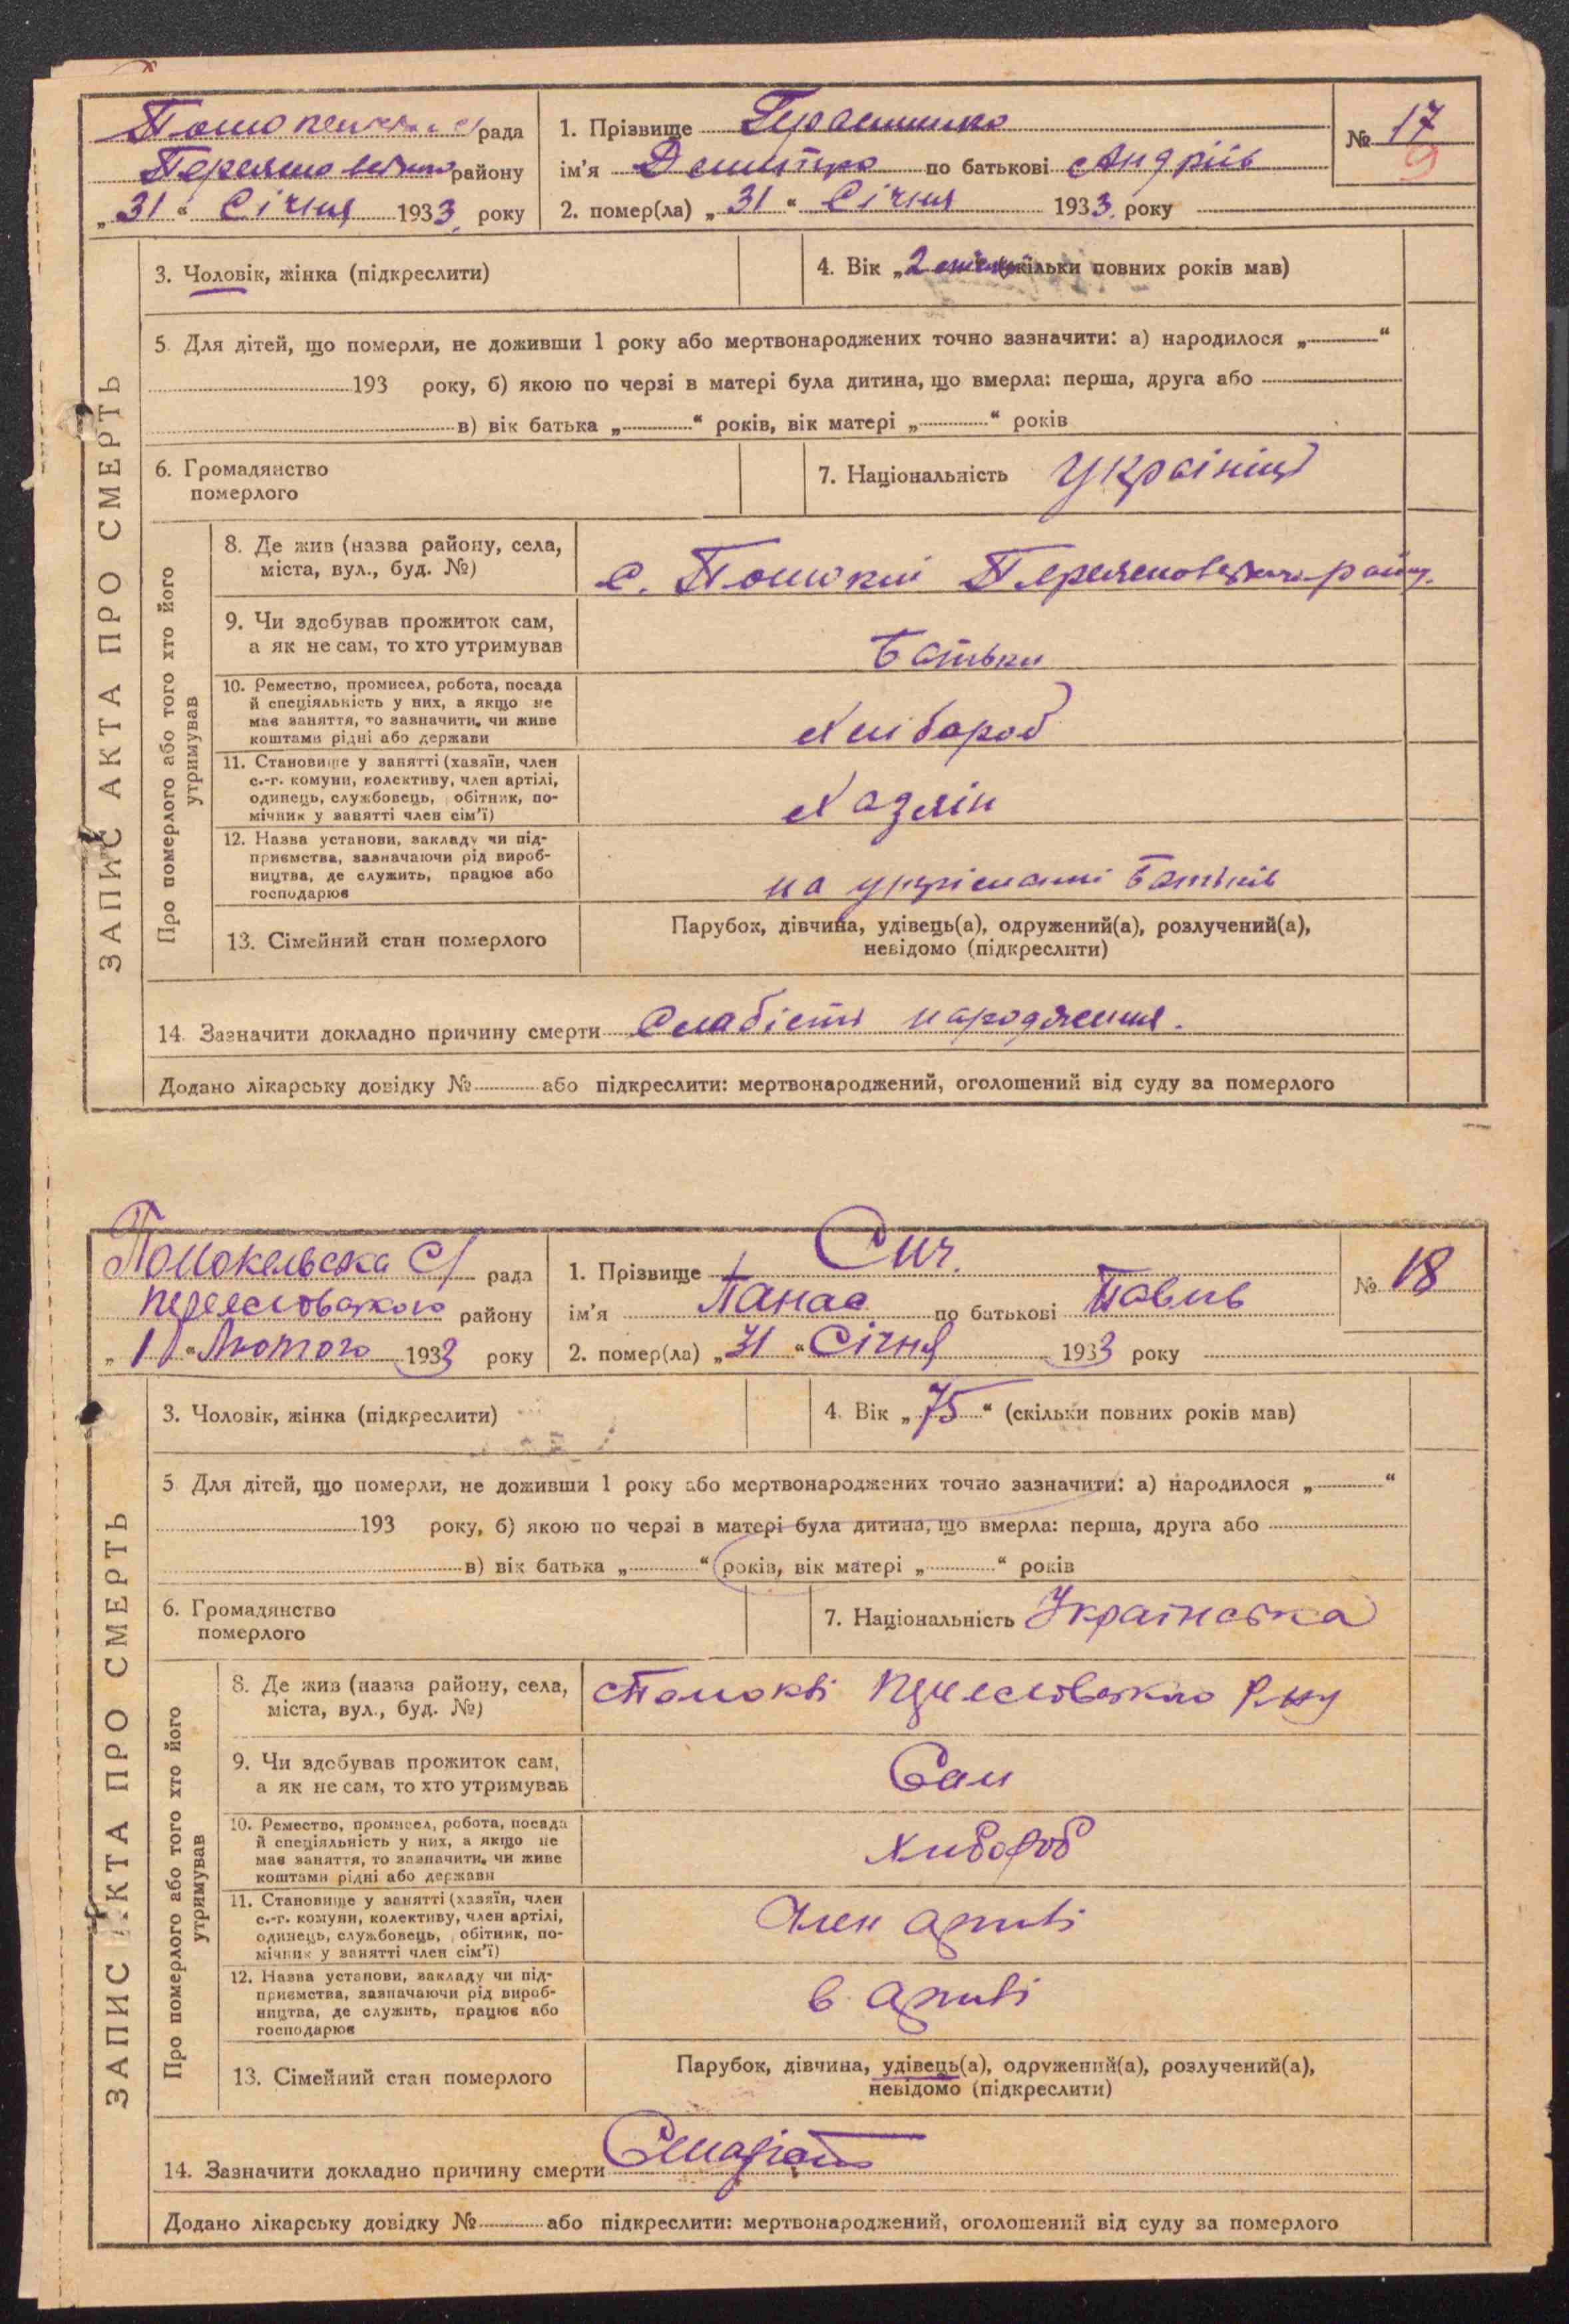 рада
району
„31“ Січня 1933 року
1. Прізвище
ім'я по батькові Андріїв
2. помер(ла) „31“ Січня 1933 року
№ 17
9
ЗАПИС АКТА ПРО СМЕРТЬ
3. Чоловік, жінка (підкреслити)
4. Вік „2 (скільки повних років мав)
5. Для дітей, що померли, не доживши 1 року або мертвонароджених точно зазначити: а) народилося „ “
193 року, б) якою по черзі в матері була дитина, що вмерла: перша, друга або
в) вік батька „ “ років, вік матері „ “ років
6. Громадянство
померлого
7. Національність Украінець
Про померлого або того хто його
утримував
8. Де жив (назва району, села,
міста, вул., буд. №)
с.
9. Чи здобував прожиток сам,
а як не сам, то хто утримував
Батьки
10. Ремество, промисел, робота, посада
й спеціяльність у них, а якщо не
має заняття, то зазначити, чи живе
коштами рідні або держави
Хлібороб
11. Становище у занятті (хазяїн, член
с.-г. комуни, колективу, член артілі,
одинець, службовець, обітник, по-
мічник у занятті член сім'ї)
Хазяін
12. Назва установи, закладу чи під-
приємства, зазначаючи рід вироб-
ництва, де служить, працює або
господарює
на утріманні Батьків
13. Сімейний стан померлого
Парубок, дівчина, удівець(а), одружений(а), розлучений(а),
невідомо (підкреслити)
14. Зазначити докладно причину смерти Слабість народження.
Додано лікарську довідку № або підкреслити: мертвонароджений, оголошений від суду за померлого
рада
району
„1“ Лютого 1933 року
1. Прізвище Сич.
ім'я Панас по батькові Павлів
2. помер(ла) „31“ Січня 1933 року
№ 18
ЗАПИС АКТА ПРО СМЕРТЬ
3. Чоловік, жінка (підкреслити)
4. Вік „75“ (скільки повних років мав)
5. Для дітей, що померли, не доживши 1 року або мертвонароджених точно зазначити: а) народилося „ “
193 року, б) якою по черзі в матері була дитина, що вмерла: перша, друга або
в) вік батька „ “ років, вік матері „ “ років
6. Громадянство
померлого
7. Національність Украінська
Про померлого або того хто його
утримував
8. Де жив (назва району, села,
міста, вул., буд. №)
9. Чи здобував прожиток сам,
а як не сам, то хто утримував
Сам
10. Ремество, промисел, робота, посада
й спеціяльність у них, а якщо не
має заняття, то зазначити, чи живе
коштами рідні або держави
Хлібороб
11. Становище у занятті (хазяїн, член
с.-г. комуни, колективу, член артілі,
одинець, службовець, обітник, по-
мічник у занятті член сім'ї)
Член артілі
12. Назва установи, закладу чи під-
приємства, зазначаючи рід вироб-
ництва, де служить, працює або
господарює
в артілі
13. Сімейний стан померлого
Парубок, дівчина, удівець(а), одружений(а), розлучений(а),
невідомо (підкреслити)
14. Зазначити докладно причину смерти
Додано лікарську довідку № або підкреслити: мертвонароджений, оголошений від суду за померлого